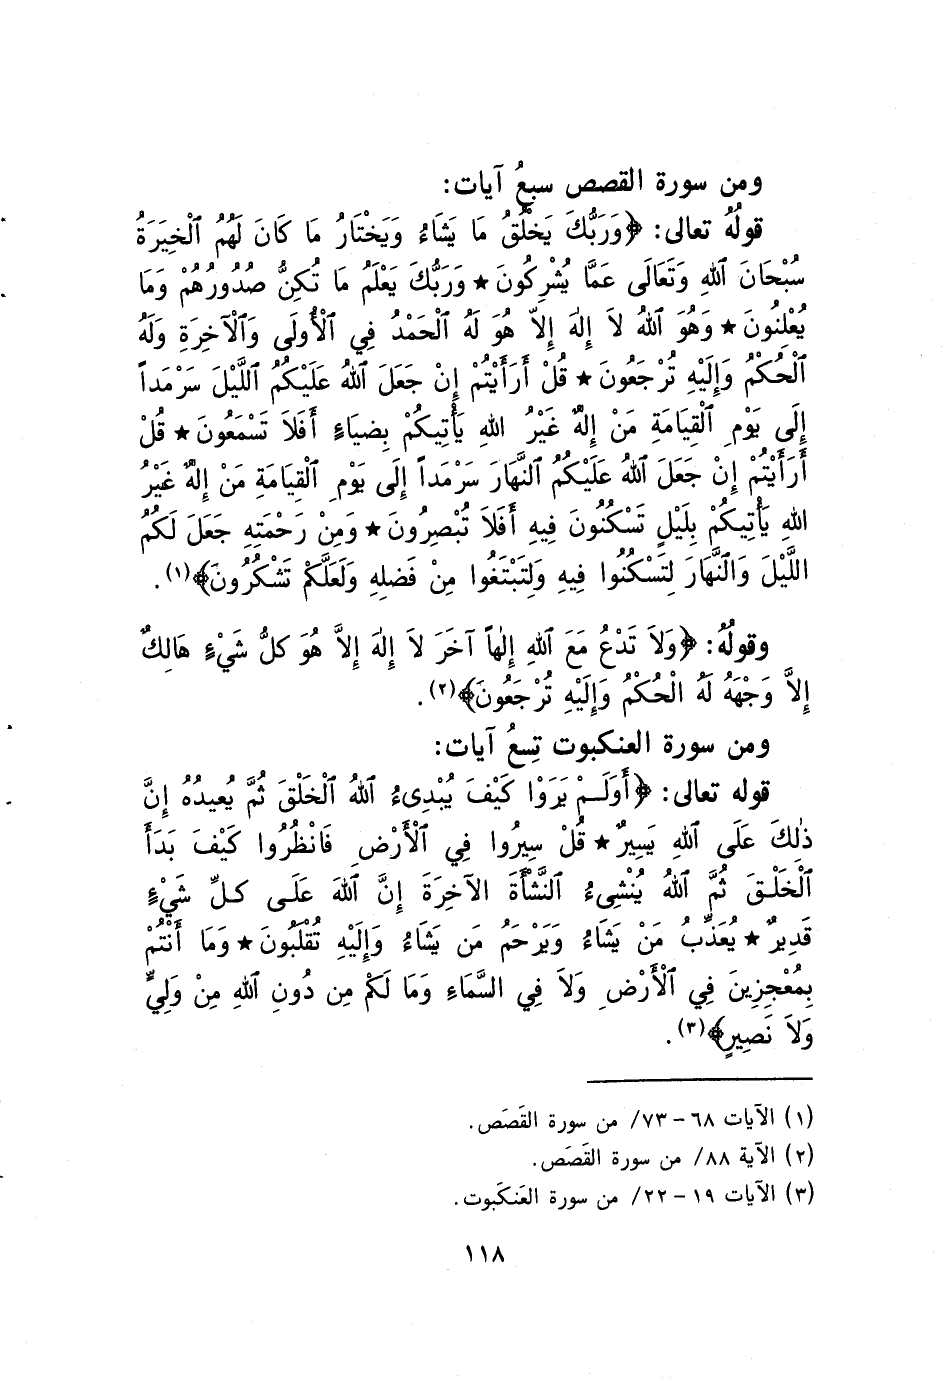 ومن سورة القصص سبعُ آيات:
قولُهُ تعالى: ﴿وَرَبُّكَ يَخلُقُ مَا يَشَاءُ وَيَخْتَارُ مَا كَانَ لَهُمُ ٱلْخِيَرَةُ
سُبْحَانَ ٱللهِ وَتَعَالَى عَمَّا يُشْرِكُونَ ★ وَرَبُّكَ يَعْلَمُ مَا تُكِنُّ صُدُورُهُمْ وَمَا
يُعْلِنُونَ ★ وَهُوَ ٱللهُ لاَ إِلٰهَ إِلاّ هُوَ لَهُ ٱلْحَمْدُ فِي ٱلْأُولَى وَٱلْآخِرَةِ وَلَهُ
ٱلْحُكْمُ وَإِلَيْهِ تُرْجَعُونَ ★ قُلْ أَرَأَيْتُمْ إِنْ جَعَلَ ٱللهُ عَلَيْكُمُ ٱللَّيْلَ سَرْمَداً
إِلَى يَوْمِ ٱلْقِيَامَةِ مَنْ إِلٰهٌ غَيْرُ اللهِ يَأْتِيكُمْ بِضِيَاءٍ أَفَلاَ تَسْمَعُونَ ★ قُلْ
أَرَأَيْتُمْ إِنْ جَعَلَ ٱللهُ عَلَيْكُمُ ٱلنَّهَارَ سَرْمَداً إِلَى يَوْمِ ٱلْقِيَامَةِ مَنْ إِلٰهٌ غَيْرُ
اللهِ يَأْتِيكُمْ بِلَيْلٍ تَسْكُنُونَ فِيهِ أَفَلاَ تُبْصِرُونَ ★ وَمِنْ رَحْمَتِهِ جَعَلَ لَكُمُ
اللَّيْلَ وَالنَّهَارَ لِتَسْكُنُوا فِيهِ وَلِتَبْتَغُوا مِنْ فَضلِهِ وَلَعَلَّكُمْ تَشْكُرُونَ﴾(١).
وقولُهُ: ﴿وَلاَ تَدْعُ مَعَ ٱللهِ إِلٰهاً آخَرَ لاَ إِلٰهَ إِلاَّ هُوَ كلُّ شَيْءٍ هَالِكٌ
إِلاَّ وَجْهَهُ لَهُ الْحُكْمُ وَإِلَيْهِ تُرْجَعُونَ﴾(٢).
ومن سورة العنكبوت تِسعُ آيات:
قوله تعالى: ﴿أَوَلَـمْ يَرَوْا كَيْفَ يُبْدِىءُ ٱللهُ ٱلْخَلْقَ ثُمَّ يُعيدُهُ إِنَّ
ذٰلِكَ عَلَى ٱللهِ يَسِيرٌ ★ قُلْ سِيرُوا فِي ٱلْأَرْضِ فَانْظُرُوا كَيْفَ بَدَأَ
ٱلْخَلْـقَ ثُمَّ ٱللهُ يُنْشِىءُ ٱلنَّشْأَةَ الآخِرَةَ إِنَّ ٱللهَ عَلَـى كـلِّ شَيْءٍ
قَدِيرٌ ★ يُعَذِّبُ مَنْ يَشَاءُ وَيَرْحَمُ مَن يَشَاءُ وَإِلَيْهِ تُقْلَبُونَ ★ وَمَا أَنْتُمْ
بِمُعْجِزِينَ فِي ٱلْأَرْضِ وَلاَ فِي السَّمَاءِ وَمَا لَكُمْ مِن دُونِ ٱللهِ مِنْ وَلِيٍّ
وَلاَ نَصِيرٍ﴾(٣).
(١) الآيات ٦٨ - ٧٣/ من سورة القَصَص.
(٢) الآية ٨٨/ من سورة القَصَص.
(٣) الآيات ١٩ - ٢٢/ من سورة العَنكَبوت.
١١٨